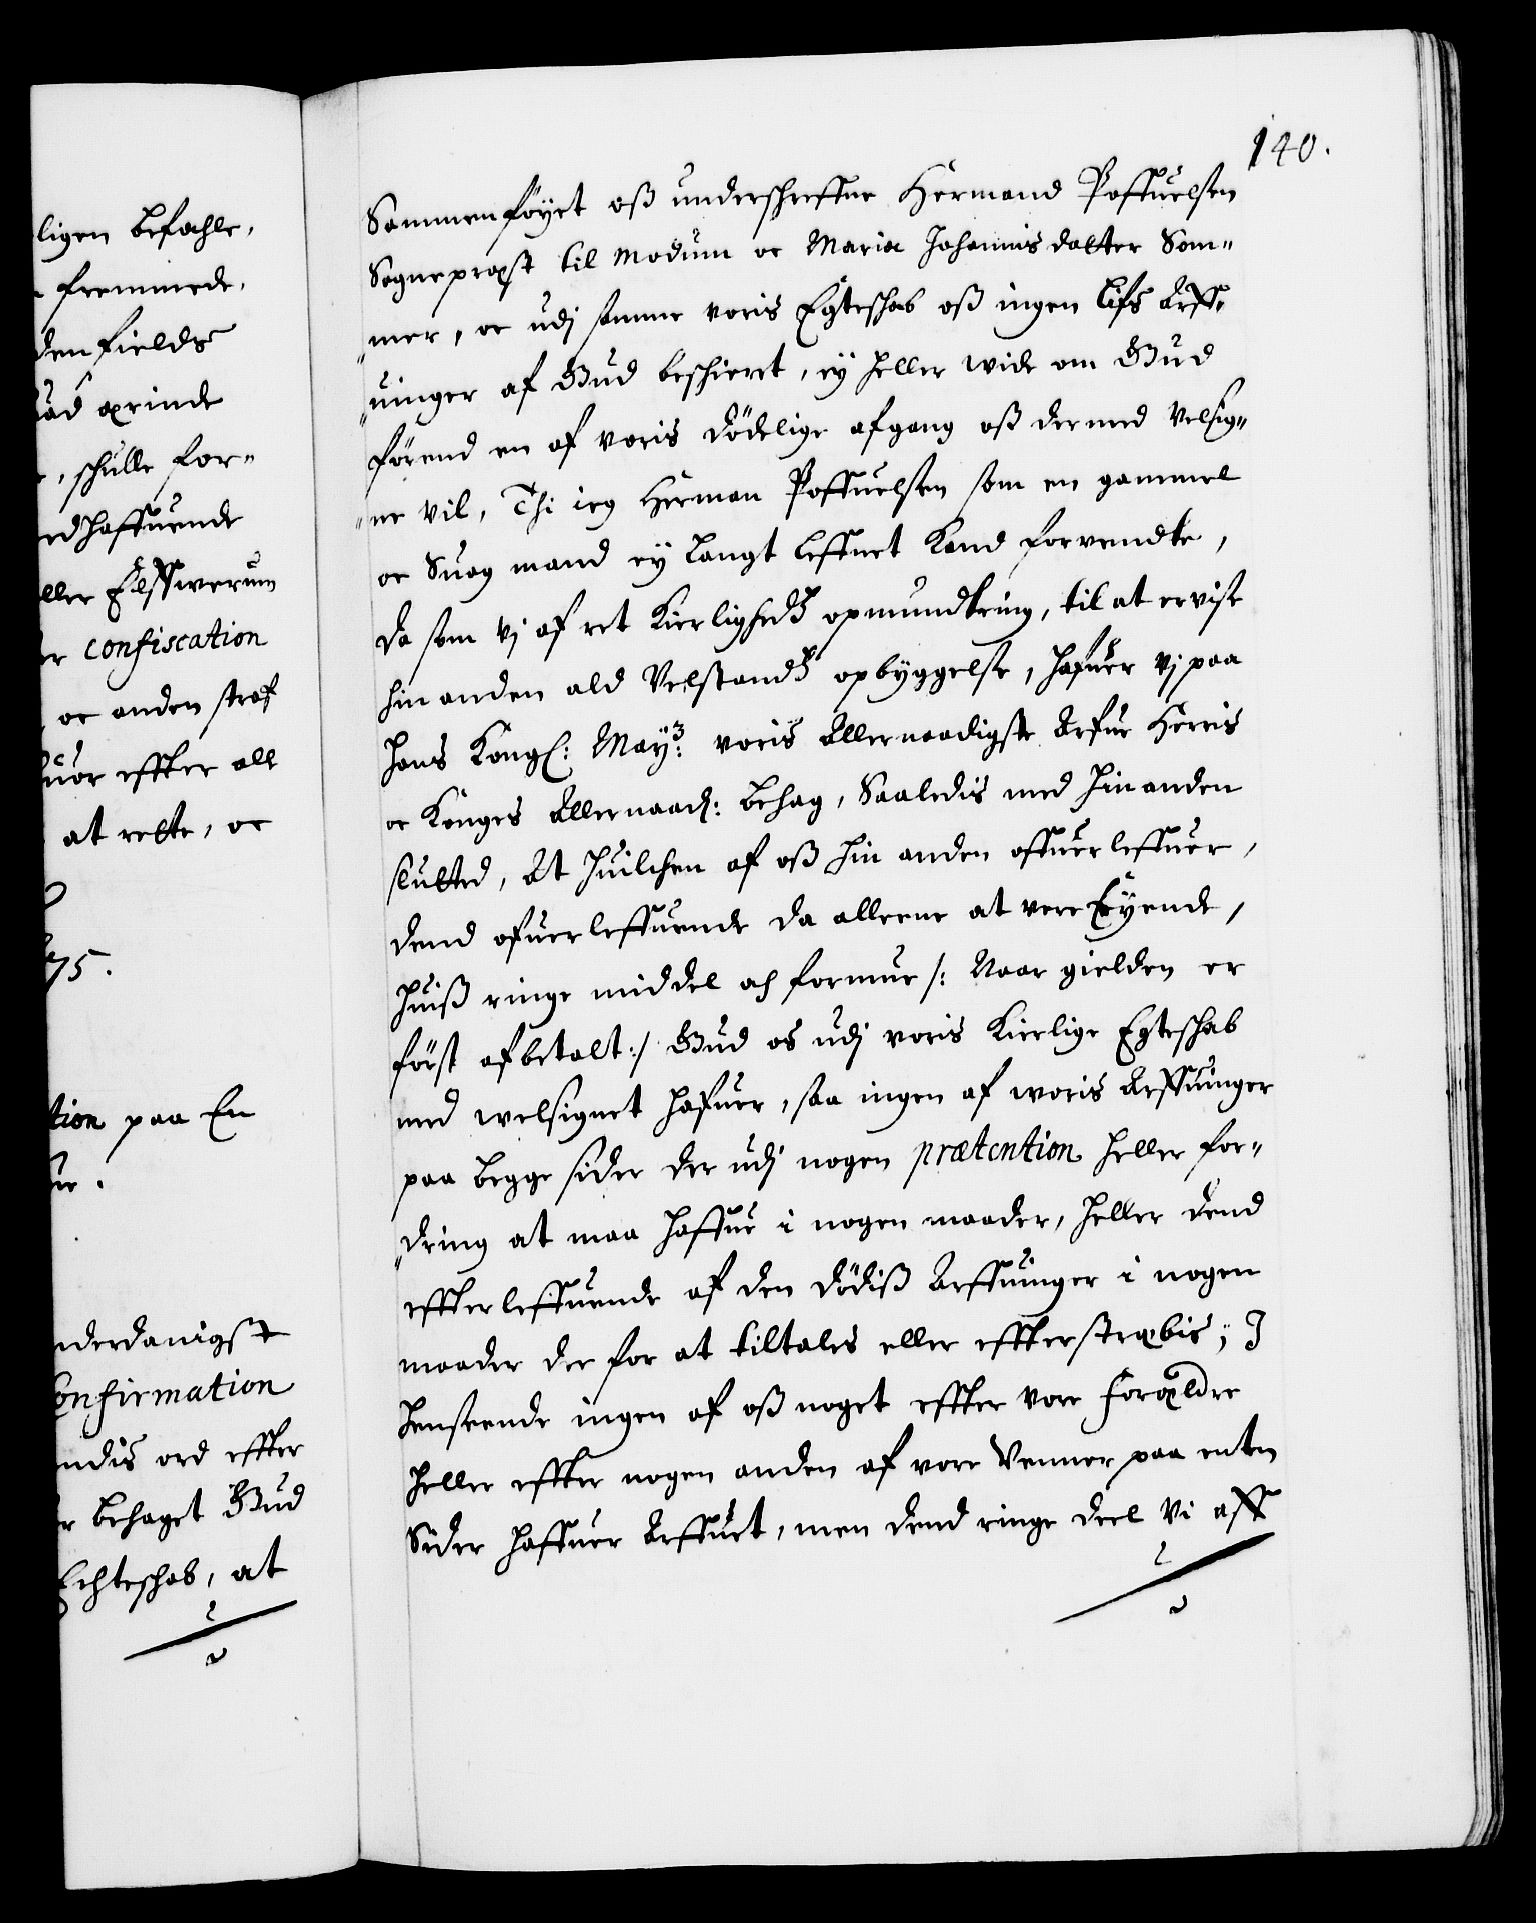 ligen befahle,
fremmede,
den fields
ærinde
, schulle for-
haffuende
eller Elffwerum
confiscation
oc anden straf
effter all
at rette, oc
75.
tion paa En
nderdanigst
onfirmation
ndis ord effter
behaget Gud
Echteschab, at
140.
Sammenföyet oß underschreffne Hermand Poffuelsen
Sognepræst til Modum oc Maria Johannisdatter Som-
mer, oc udj samme voris Egteschab oß ingen lifs Arff-
uinger af Gud beschieret, ey heller wide om Gud
förend en af voris dödelige afgang oß dermed velsig-
ne vil, Thi ieg Herman Poffuelsen som en gammel
oc Suag mand ey langt leffnet kand forvendte,
da som vj af ret Kierligheds opmundtring, til at ervise
hin anden ald Velstands opbyggelse, hafuer vj paa
Hans Kongl: May: voris Allernaadigste Arfue Herris
oc Konges Allernaad: behag, Saaledis med hin anden
slutted, At huilchen af oß hin anden offuerleffuer,
dend ofuerleffuende da alleene at vere Eyende,
huiß ringe middel och formue /: Naar gielden er
först afbetalt :/ Gud os udj voris Kierlige Egteschab
med welsignet hafuer, saa ingen af woris Arffuinger
paa begge sider der udj nogen prætention heller for-
dring at maa haffue i nogen maader, heller dend
effterleffuende af den dödiß Arffuinger i nogen
maader der for at tiltales eller effterstræbis; I
henseende ingen af oß noget effter vore forældre
heller effter nogen anden af vore Venner paa enten
Sider haffuer Arffuet, men dend ringe deel Vi aff